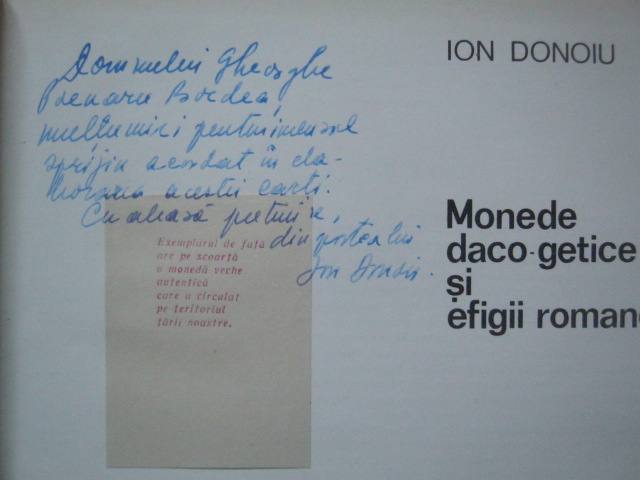 Domnului Gheorghe
Poenaru Bordea,
mulțumiri pentru imensul
sprijin acordat în ela-
borarea acestei cărți.
Cu aleasă prețuire,
din partea lui
Ion Donoiu.
Exemplarul de față
are pe scoarță
o monedă veche
autentică
care a circulat
pe teritoriul
țării noastre.
ION DONOIU
Monede
daco-getice
și
efigii roman